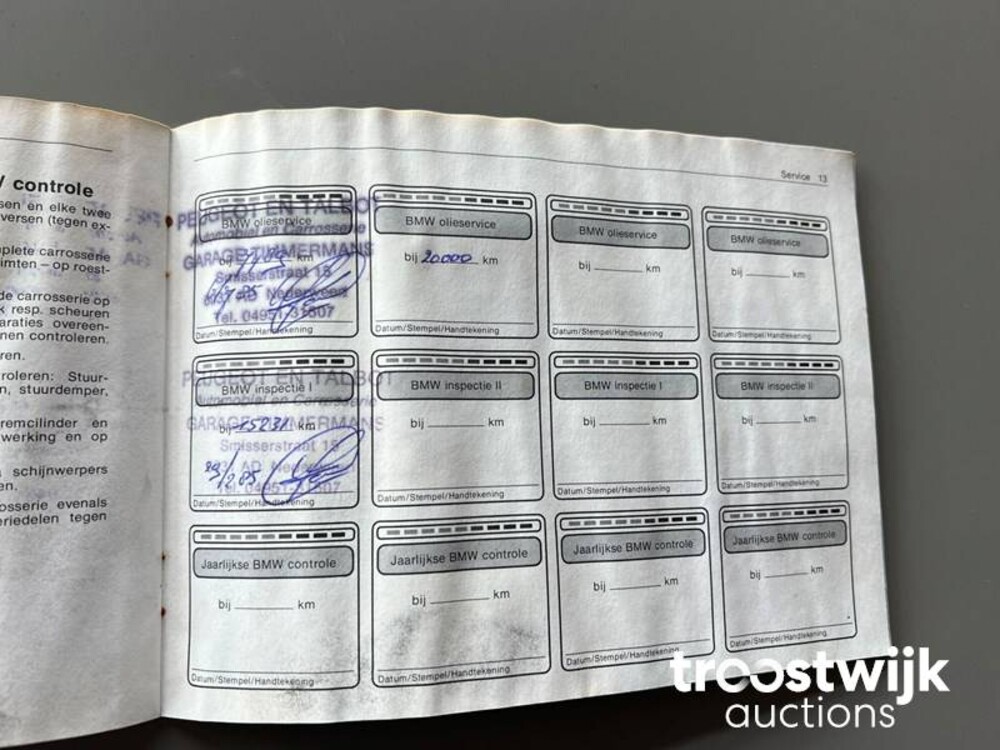 / controle
sen en elke twee
versen (tegen ex-
plete carrosserie
imten – op roest-
de carrosserie op
k resp. scheuren
araties overeen-
nen controleren.
ren.
roleren: Stuur-
n, stuurdemper,
remcilinder en
werking en op
schijnwerpers
en.
osserie evenals
eriedelen tegen
Service 13
BMW olieservice
bij km
Datum/Stempel/Handtekening
PEUGEOT EN TALBOT
Automobiel en Carrosserie
GARAGE ZIMMERMANS
Smisserstraat 15
AD Nederweert
Tel. 04951-31507
BMW olieservice
bij 20000 km
Datum/Stempel/Handtekening
BMW olieservice
bij km
Datum/Stempel/Handtekening
BMW olieservice
bij km
Datum/Stempel/Handtekening
BMW inspectie I
bij 15231 km
Datum/Stempel/Handtekening
PEUGEOT EN TALBOT
Automobiel en Carrosserie
GARAGE ZIMMERMANS
Smisserstraat 15
AD Nederweert
Tel. 04951-31507
BMW inspectie II
bij km
Datum/Stempel/Handtekening
BMW inspectie I
bij km
Datum/Stempel/Handtekening
BMW inspectie II
bij km
Datum/Stempel/Handtekening
Jaarlijkse BMW controle
bij km
Datum/Stempel/Handtekening
Jaarlijkse BMW controle
bij km
Datum/Stempel/Handtekening
Jaarlijkse BMW controle
bij km
Datum/Stempel/Handtekening
Jaarlijkse BMW controle
bij km
Datum/Stempel/Handtekening
troostwijk
auctions